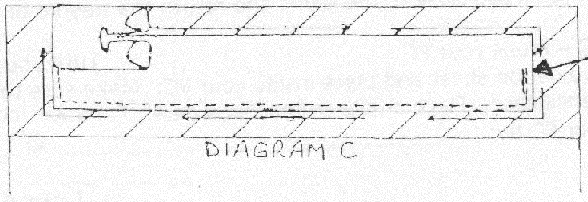 DIAGRAM C